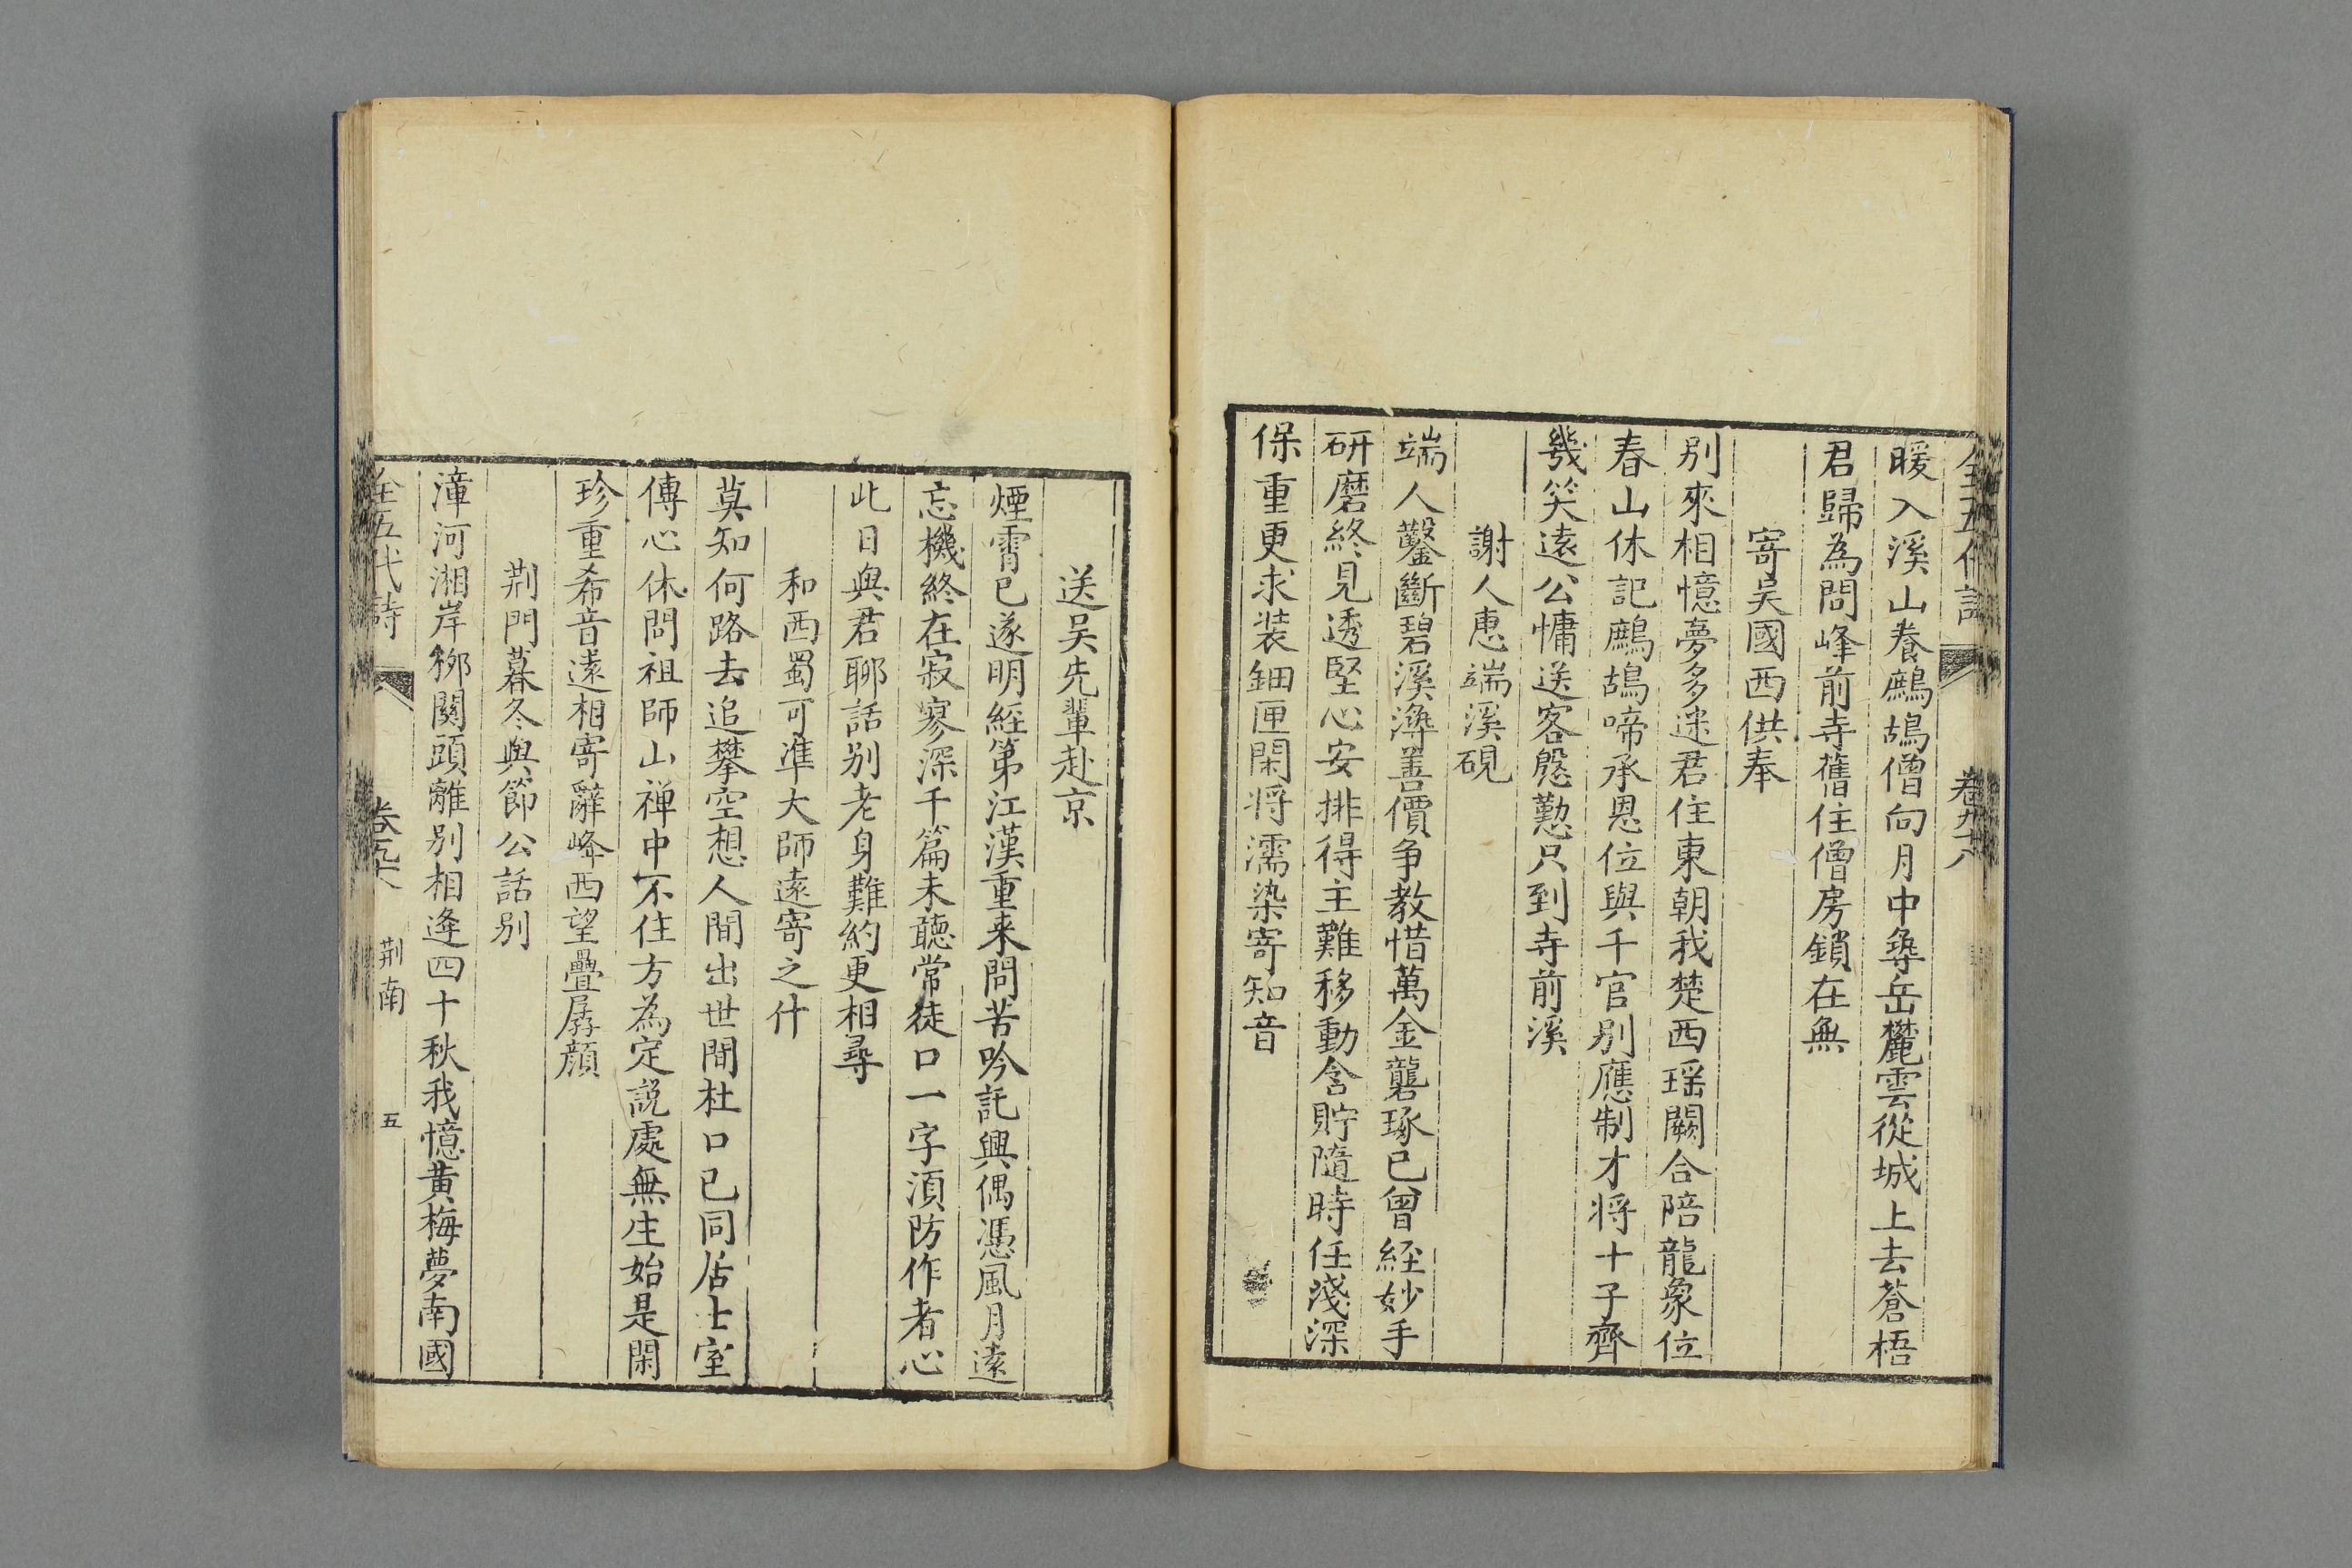 暖入溪山養鷓鴣僧向月中尋岳麓雲從城上去蒼梧
君歸為問峰前寺舊住僧房鎖在無
寄吳國西供奉
別來相憶夢多迷君住東朝我楚西瑶闕合陪龍象位
春山休記鷓鴣啼承恩位與千官別應制才将十子齊
幾笑遠公慵送客殷勤只到寺前溪
謝人惠端溪硯
端人鑿斷碧溪潯善價争教惜萬金礱琢已曾經妙手
研磨終見透堅心安排得主難移動含貯隨時任淺深
保重更求装鈿匣閑将濡染寄知音
送吴先輩赴京
煙霄已遂明經第江漢重来問苦吟託興偶憑風月遠
忘機終在寂寥深千篇未聽常徒口一字須防作者心
此日與君聊話别老身難約更相尋
和西蜀可準大師遠寄之什
莫知何路去追攀空想人間出世間杜口已同居士室
傳心休問祖師山禅中不住方為定說處無生始是閑
珍重希音遠相寄辭峰西望疊孱顔
荆門暮冬與節公話别
漳河湘岸柳關頭離别相逢四十秋我憶黄梅夢南國
全五代詩
荆南
五